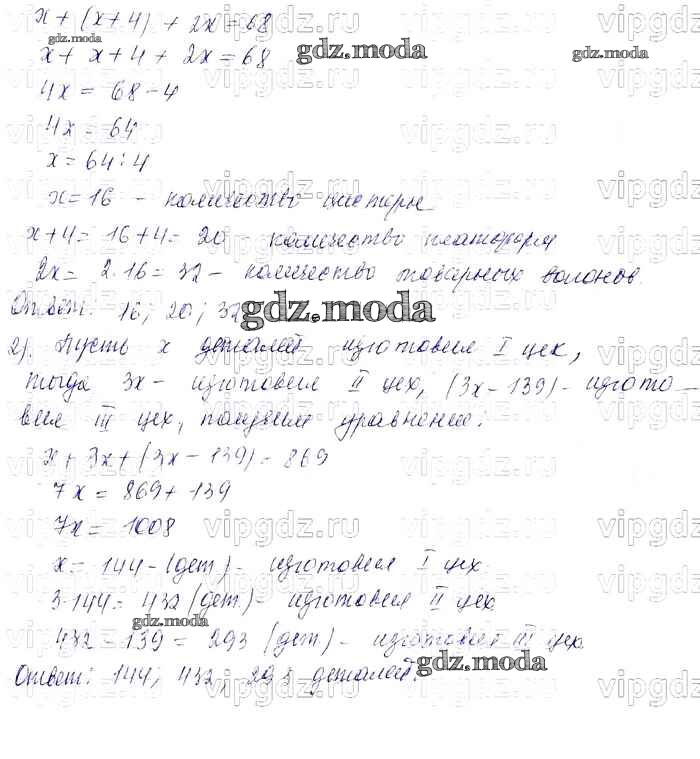 x + (x + 4) + 2x = 68
x + x + 4 + 2x = 68
4x = 68 - 4
4x = 64
x = 64 : 4
x = 16 - количество цистерн
x + 4 = 16 + 4 = 20 количество платформ
2x = 2 · 16 = 32 - количество товарных вагонов.
Ответ: 16; 20; 32
2). Пусть x деталей изготовил I цех,
тогда 3x - изготовил II цех, (3x - 139) - изгото-
вил III цех, получим уравнение:
x + 3x + (3x - 139) = 869
7x = 869 + 139
7x = 1008
x = 144 - (дет) - изготовил I цех
3 · 144 = 432 (дет) - изготовил II цех
432 - 139 = 293 (дет) - изготовил III цех.
Ответ: 144; 432, 293 деталей.
gdz.moda
vipgdz.ru